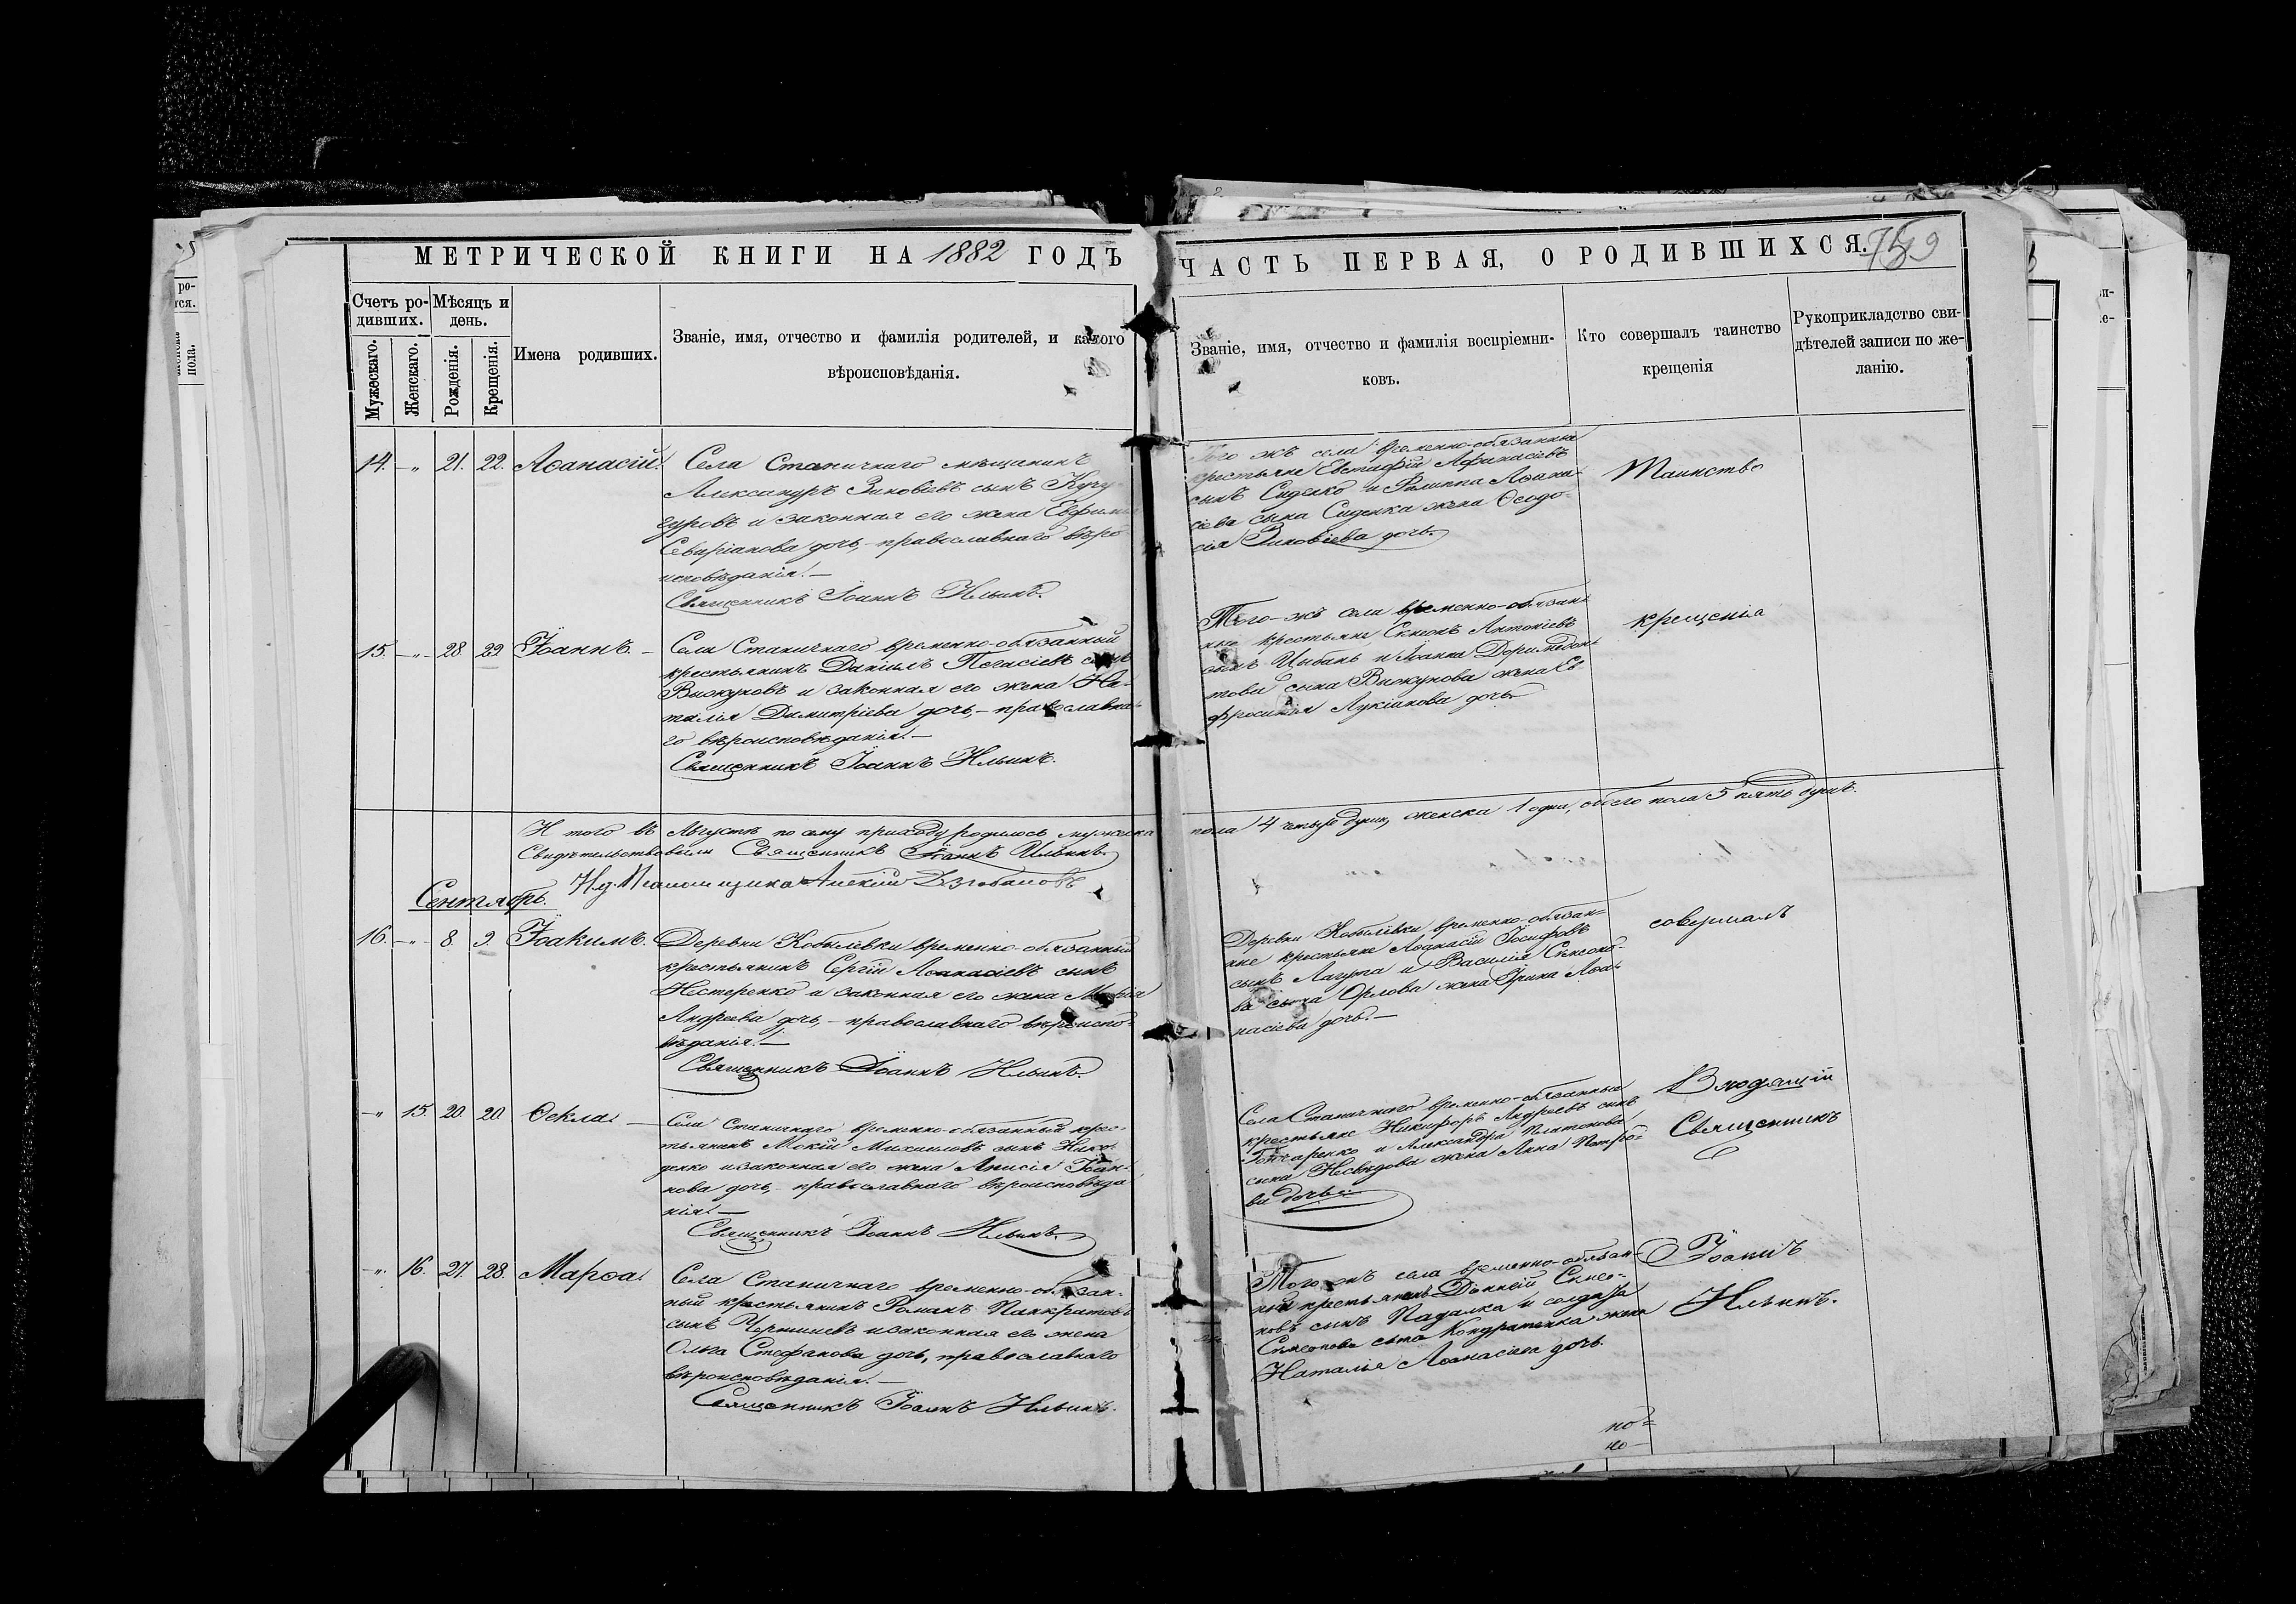 МЕТРИЧЕСКОЙ КНИГИ НА 1882 ГОДЪ
ЧАСТЬ ПЕРВАЯ, О РОДИВШИХСЯ.
Счетъ ро-
дившихъ.
Мѣсяцъ и
день.
Мужескаго.
Женскаго.
Рожденія.
Крещенія.
Имена родившихъ.
Званіе, имя, отчество и фамилія родителей, и какого
вѣроисповѣданія.
Званіе, имя, отчество и фамилія воспріемни-
ковъ.
Кто совершалъ таинство
крещенія
Рукоприкладство сви-
дѣтелей записи по же-
ланію.
14. -„ 21. 22. Аѳанасій.
Села Станичнаго мѣщанинъ
Александръ Зиновіевъ сынъ
и законная его жена
Северіанова дочь, - православнаго вѣро
исповѣданія. -
Священникъ Іоаннъ Ильинъ.
Того жъ села временно-обязанные
крестьяне Евстафій Афанасіевъ
сынъ Сиденко и Филиппа Аѳана
сіева сына Сиденка жена Ѳеодо-
сія Зиновіева дочь.
Таинство
15. -„- 28 29. Іоаннъ. -
Села Станичнаго временно-обязанный
крестьянинъ Даніилъ сынъ
Вижуновъ и законная его жена На-
талія Димитріева дочь, - православна-
го вѣроисповѣданія. -
Священникъ Іоаннъ Ильинъ.
Того-жъ села временно-обязан-
ные крестьяне Симеонъ Антоніевъ
сынъ Цыбань и Іоанна Доримедон-
това сына Вижунова жена Ев-
фросинія Лукіанова дочь
крещенія
И того въ Августѣ по сему приходу родилось мужеска
пола 4 четыре души, женска 1 одна, обоего пола 5 пять душъ.
Свидѣтельствовали Священникъ Іоаннъ Ильинъ.
И.д. Псаломщика Алексій
Сентябрь.
16. -„- 8. 9. Іоакимъ.
Деревни Кобылевки временно-обязанный
крестьянинъ Сергій Аѳанасіевъ сынъ
Нестеренко и законная его жена Марѳа
Андреева дочь, - православнаго вѣроиспо-
вѣданія. -
Священникъ Іоаннъ Ильинъ.
Деревни Кобылевки временно-обязан-
ные крестьяне Аѳанасій Іосифовъ
сынъ Лагута и Василія Симеоно-
ва сына Орлова жена Ирина Аѳа-
насіева дочь. -
совершалъ
-„ 15. 20 20. Ѳекла. -
Села Станичнаго временно-обязанный крес-
тьянинъ Мокій Михаиловъ сынъ
и законная его жена Анисія Іоан-
нова дочь, - православнаго вѣроисповѣда
нія. -
Священникъ Іоаннъ Ильинъ.
Села Станичнаго временно-обязанные
крестьяне Никифоръ Андреевъ сынъ
Гончаренко и Александра Платонова
сына жена Анна Петро-
ва дочь
Священникъ
-„. 16. 27. 28. Марѳа.
Села Станичнаго временно-обязан-
ный крестьянинъ Романъ Панкратовъ
сынъ Чернышевъ и законная его жена
Ольга Стефанова дочь, православнаго
вѣроисповѣданія. -
Священникъ Іоаннъ Ильинъ.
Того жъ села временно-обязан-
ный крестьянинъ Симео-
новъ сынъ Падалка и солдата
Симеонова сына Кондратенка жена
Наталья Аѳанасіева дочь.
Іоаннъ
Ильинъ.
по-